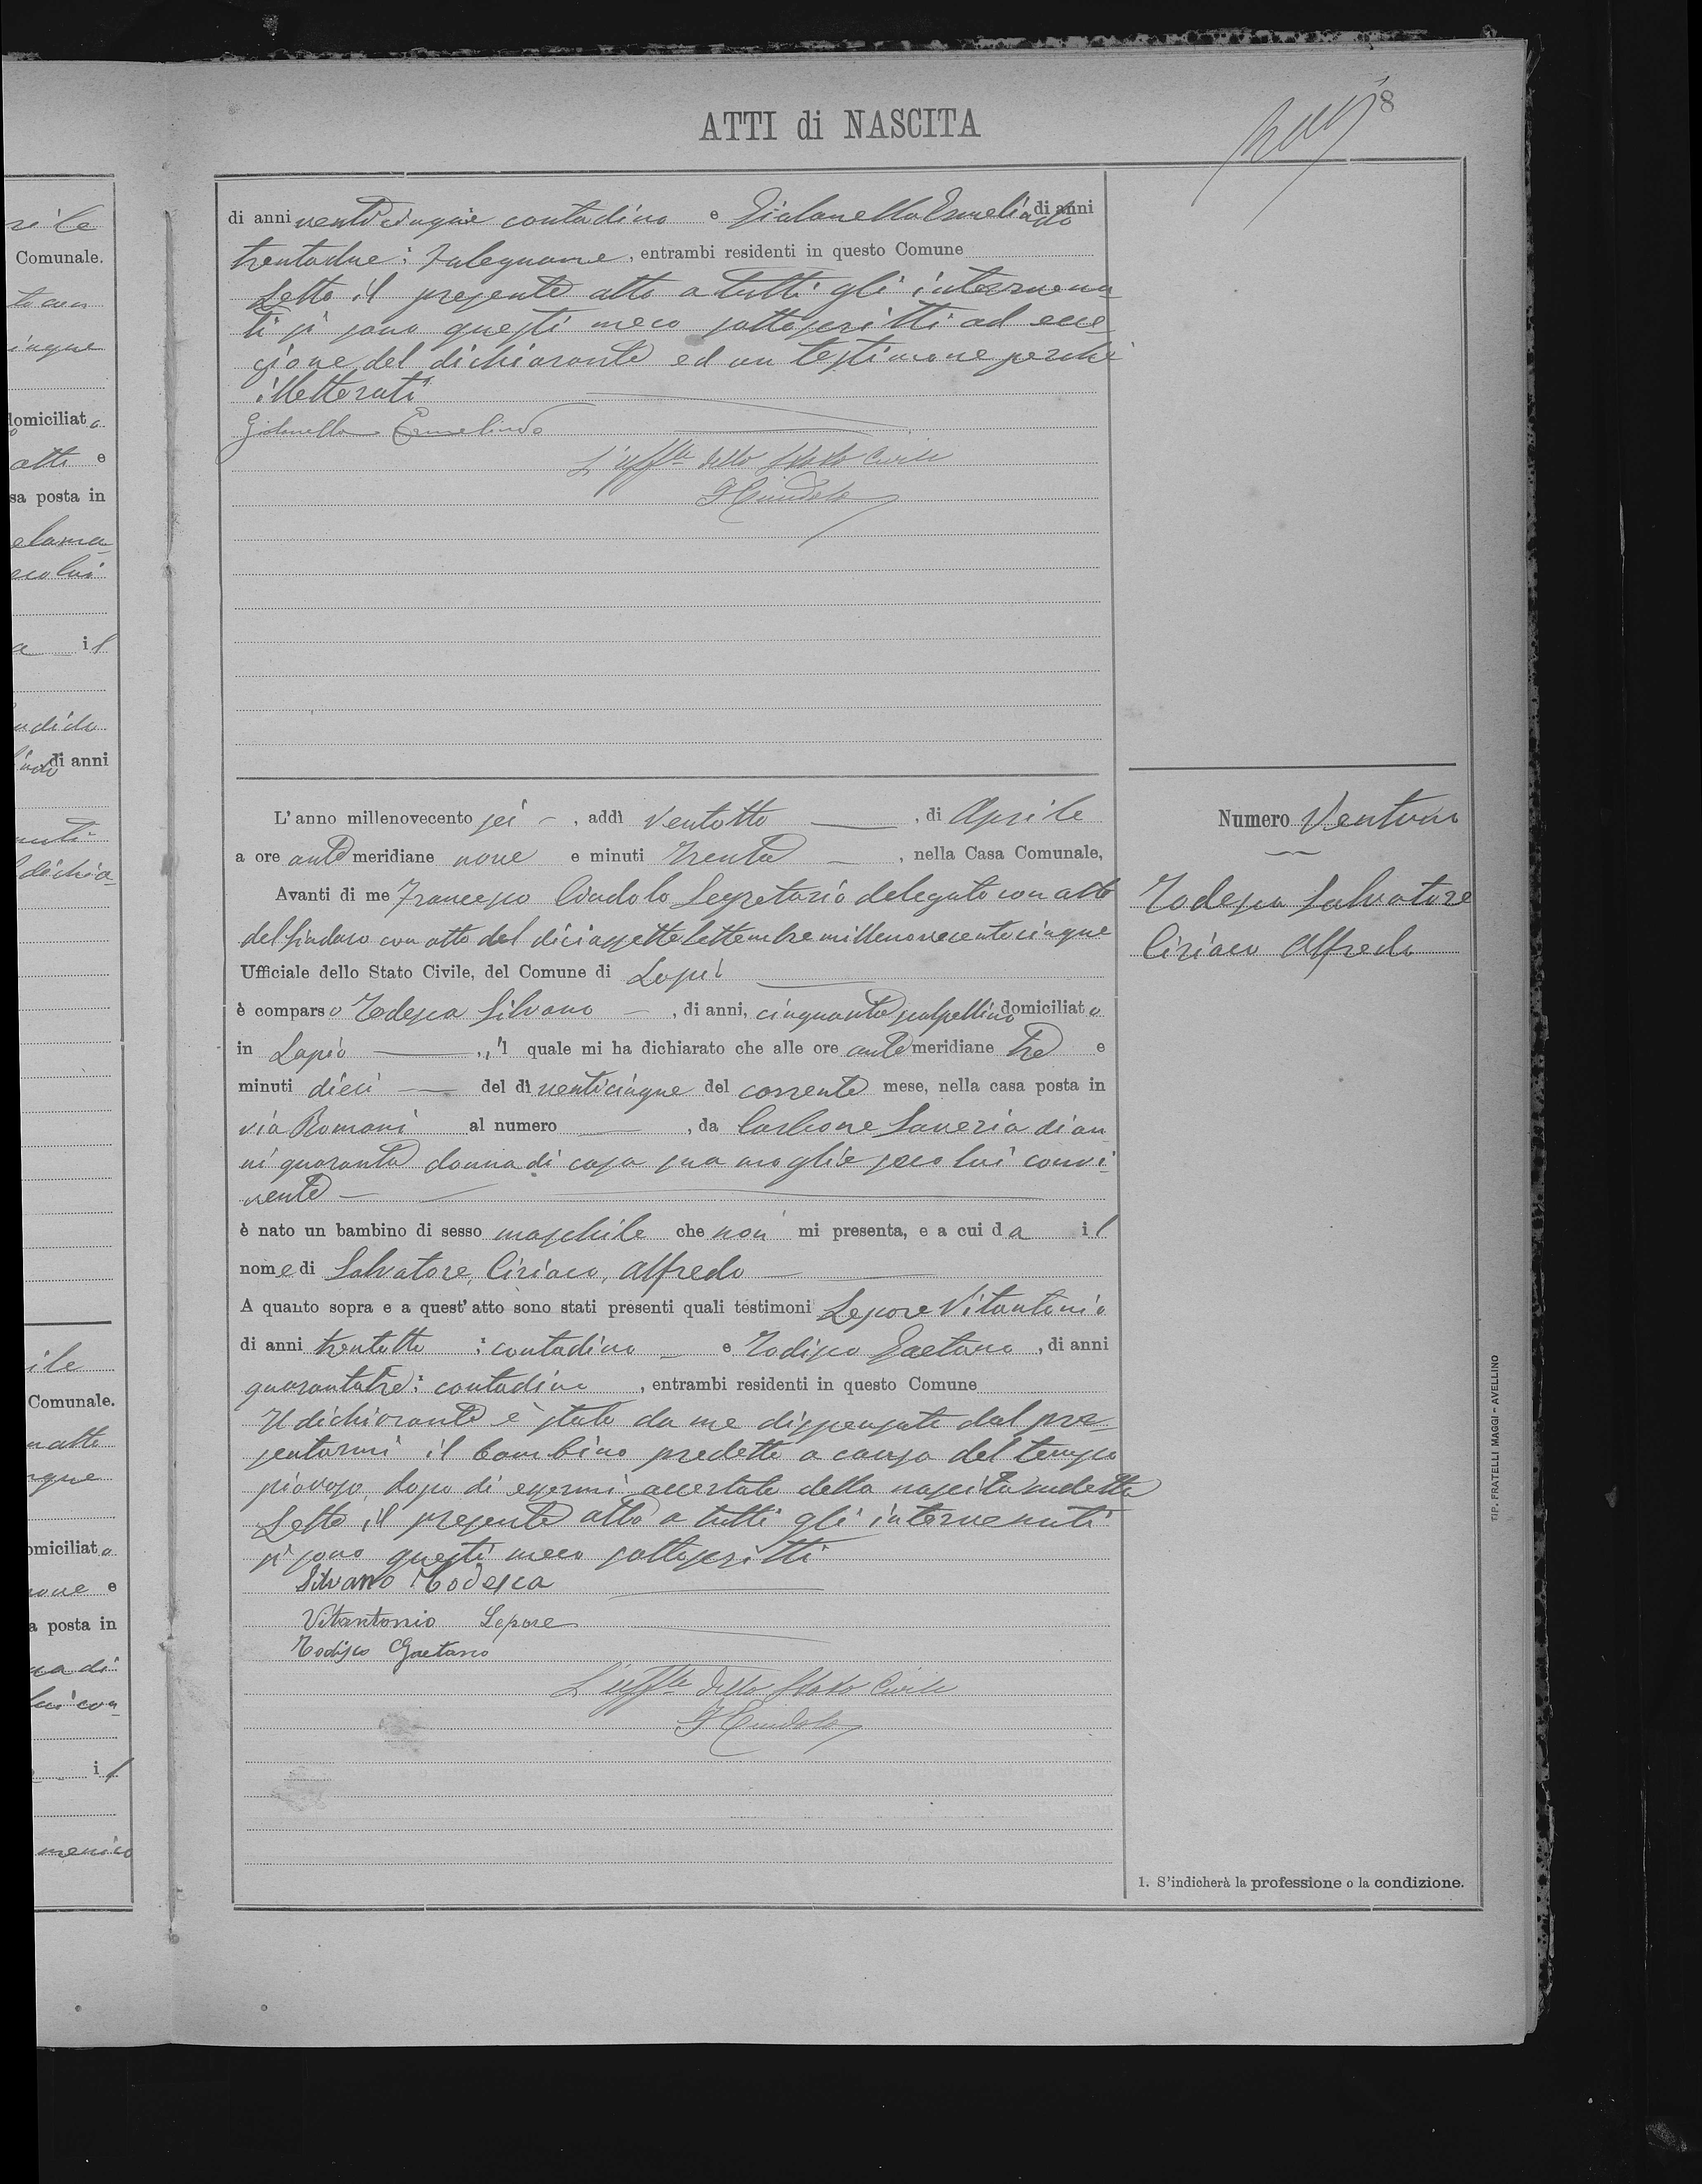 8
ATTI di NASCITA
di anni venticinque contadino e Gialanella Ermelindo di anni
trentadue: falegname, entrambi residenti in questo Comune
Letto il presente atto a tutti gli intervenu-
ti si sono questi meco sottoscritti ad ecce-
zione del dichiarante ed un testimone perché
illetterati
Gialanella Ermelindo
L'Uffle dello Stato Civile
F Ciindolo
L'anno millenovecento sei, addì ventotto, di Aprile
a ore antemeridiane nove e minuti trenta, nella Casa Comunale,
Avanti di me Francesco Ciindolo Segretario delegato con atto
del Sindaco con atto del diciassette Settembre millenovecentocinque
Ufficiale dello Stato Civile, del Comune di Lapio
è comparso Todesca Silvano, di anni, cinquanta scalpellino domiciliato
in Lapio, il quale mi ha dichiarato che alle ore antemeridiane tre e
minuti dieci del dì venticinque del corrente mese, nella casa posta in
via Romani al numero, da Carbone Saveria di an-
ni quaranta donna di casa sua moglie seco lui convi-
vente
è nato un bambino di sesso maschile che non mi presenta, e a cui da il
nome di Salvatore, Ciriaco, Alfredo
A quanto sopra e a quest'atto sono stati presenti quali testimoni Lepore Vitantonio
di anni trentotto: contadino e Todisco Gaetano, di anni
quarantatre: contadino, entrambi residenti in questo Comune
Il dichiarante è stato da me dispensato dal pre-
sentarmi il bambino predetto a causa del tempo
piovoso, dopo di essermi accertato della nascita sudetta
Letto il presente atto a tutti gli intervenuti
si sono questi meco sottoscritti
Silvano Todesca
Vitantonio Lepore
Todisco Gaetano
L'uffle dello Stato Civile
F Ciindolo
Numero Ventuno
Todesca Salvatore
Ciriaco Alfredo
1. S'indicherà la professione o la condizione.
TIP. FRATELLI MAGGI - AVELLINO
rile
Comunale.
inque
domiciliato
atti e
sa posta in
a il
di anni
dichia-
ile
Comunale.
domiciliato
e
a posta in
il
menico